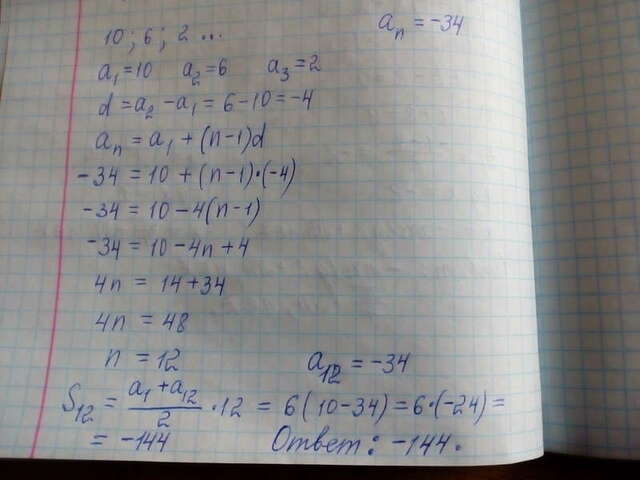 10; 6; 2 ... aₙ = -34
a₁=10 a₂=6 a₃=2
d=a₂-a₁=6-10=-4
aₙ=a₁+(n-1)d
-34=10+(n-1)·(-4)
-34=10-4(n-1)
-34=10-4n+4
4n=14+34
4n=48
n=12 a₁₂=-34
S₁₂ = (a₁+a₁₂)/2 · 12 = 6(10-34)=6·(-24)=
= -144 Ответ: -144.